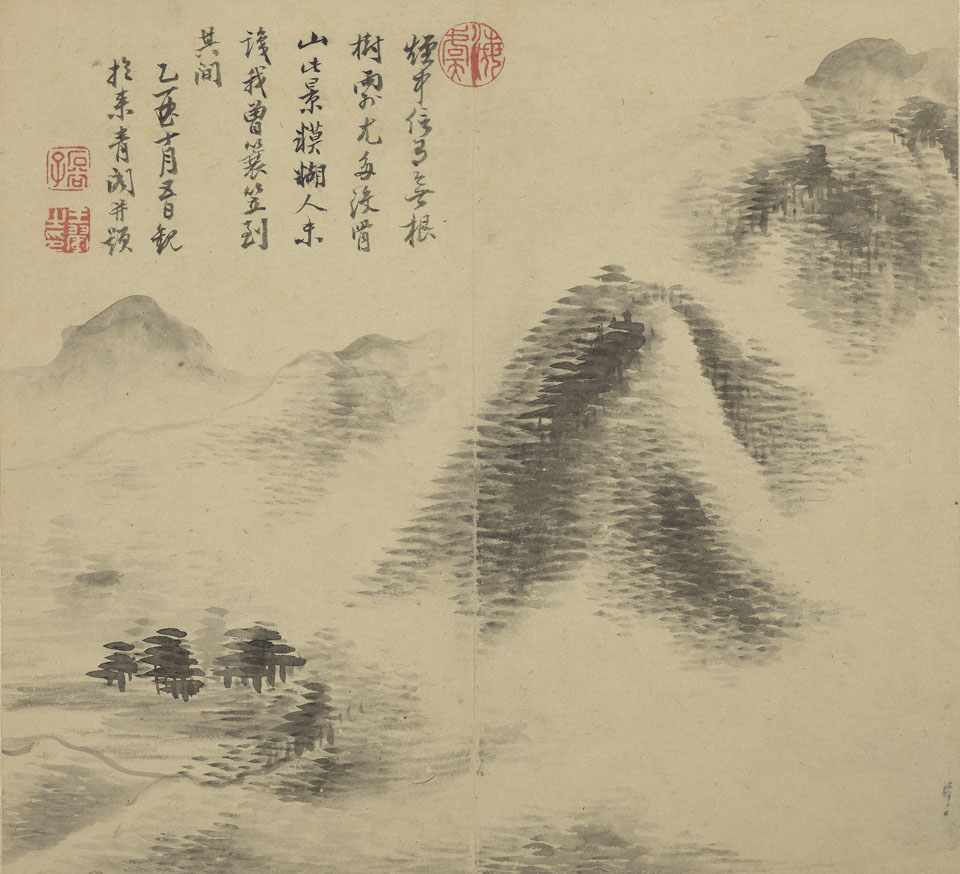 煙中信有無根
樹雨外尤多沒骨
山此景糢糊人未
識我曾簑笠到
其間
乙酉十月五日觀
於來青閣并題